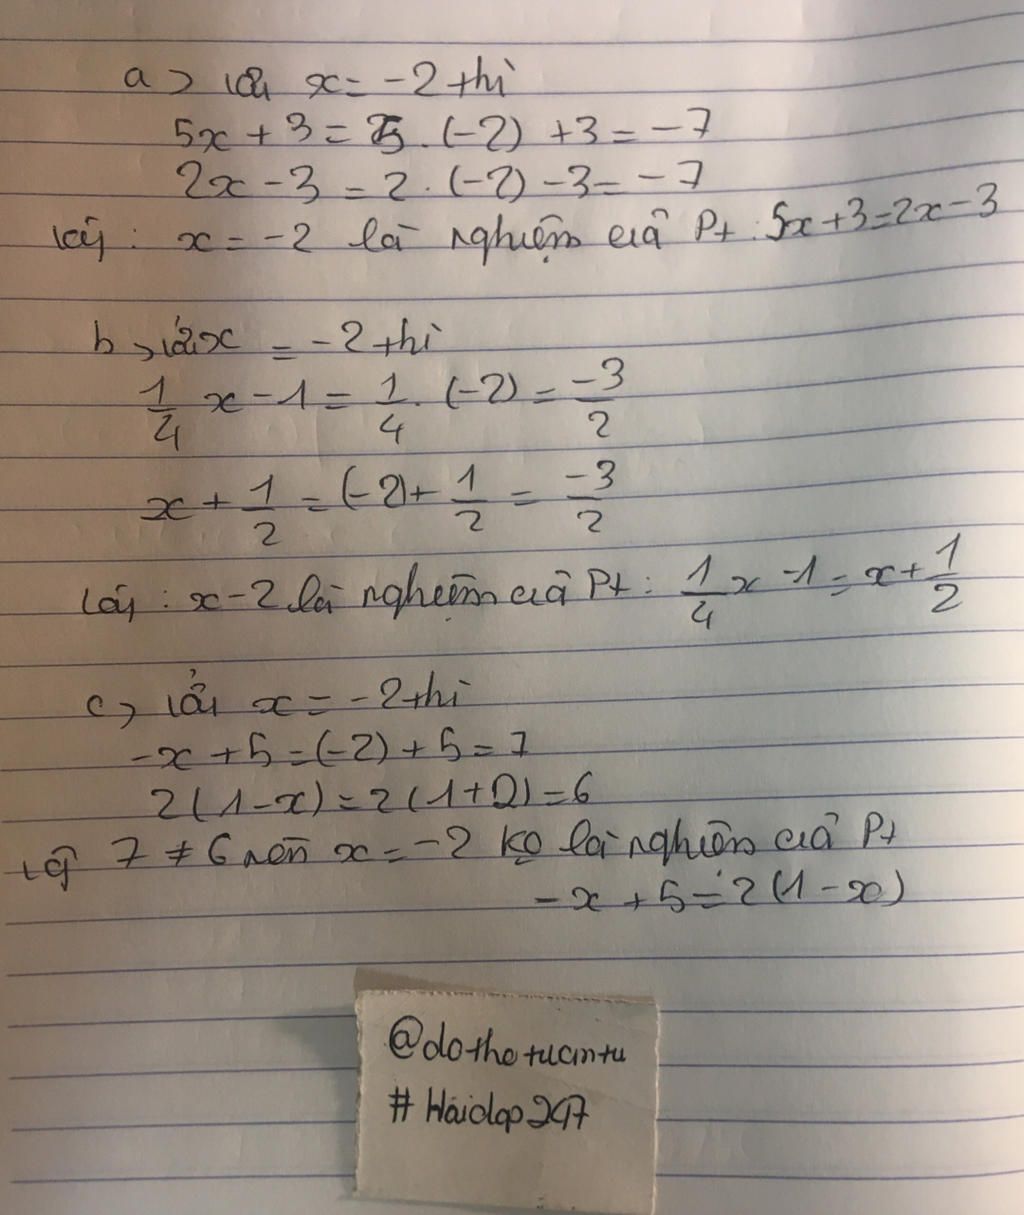 a) Với x = -2 thì
5x + 3 = 5 . (-2) + 3 = -7
2x - 3 = 2 . (-2) - 3 = -7
Vậy : x = -2 là nghiệm của Pt : 5x + 3 = 2x - 3
b, với x = -2 thì
1/4 x - 1 = 1/4 . (-2) = -3/2
x + 1/2 = (-2) + 1/2 = -3/2
Vậy : x - 2 là nghiệm của Pt : 1/4 x - 1 = x + 1/2
c, với x = -2 thì
-x + 5 = (-2) + 5 = 7
2(1-x) = 2(1+2) = 6
Vậy 7 ≠ 6 nên x = -2 ko là nghiệm của Pt
-x + 5 = 2(1-x)
@dothetuantu
#Hoidap247